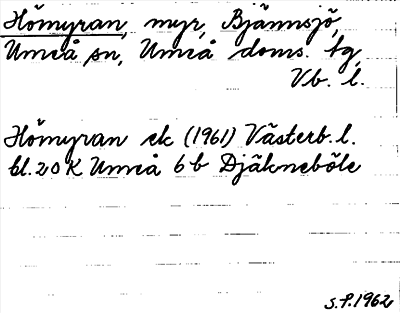 Hömyran, myr, Bjännsjö,
Umeå sn, Umeå doms. tg,
Vb. l.
Hömyran ek (1961) Västerb. l.
bl. 20 K Umeå 6 b Djäkneböle
S.P. 1962